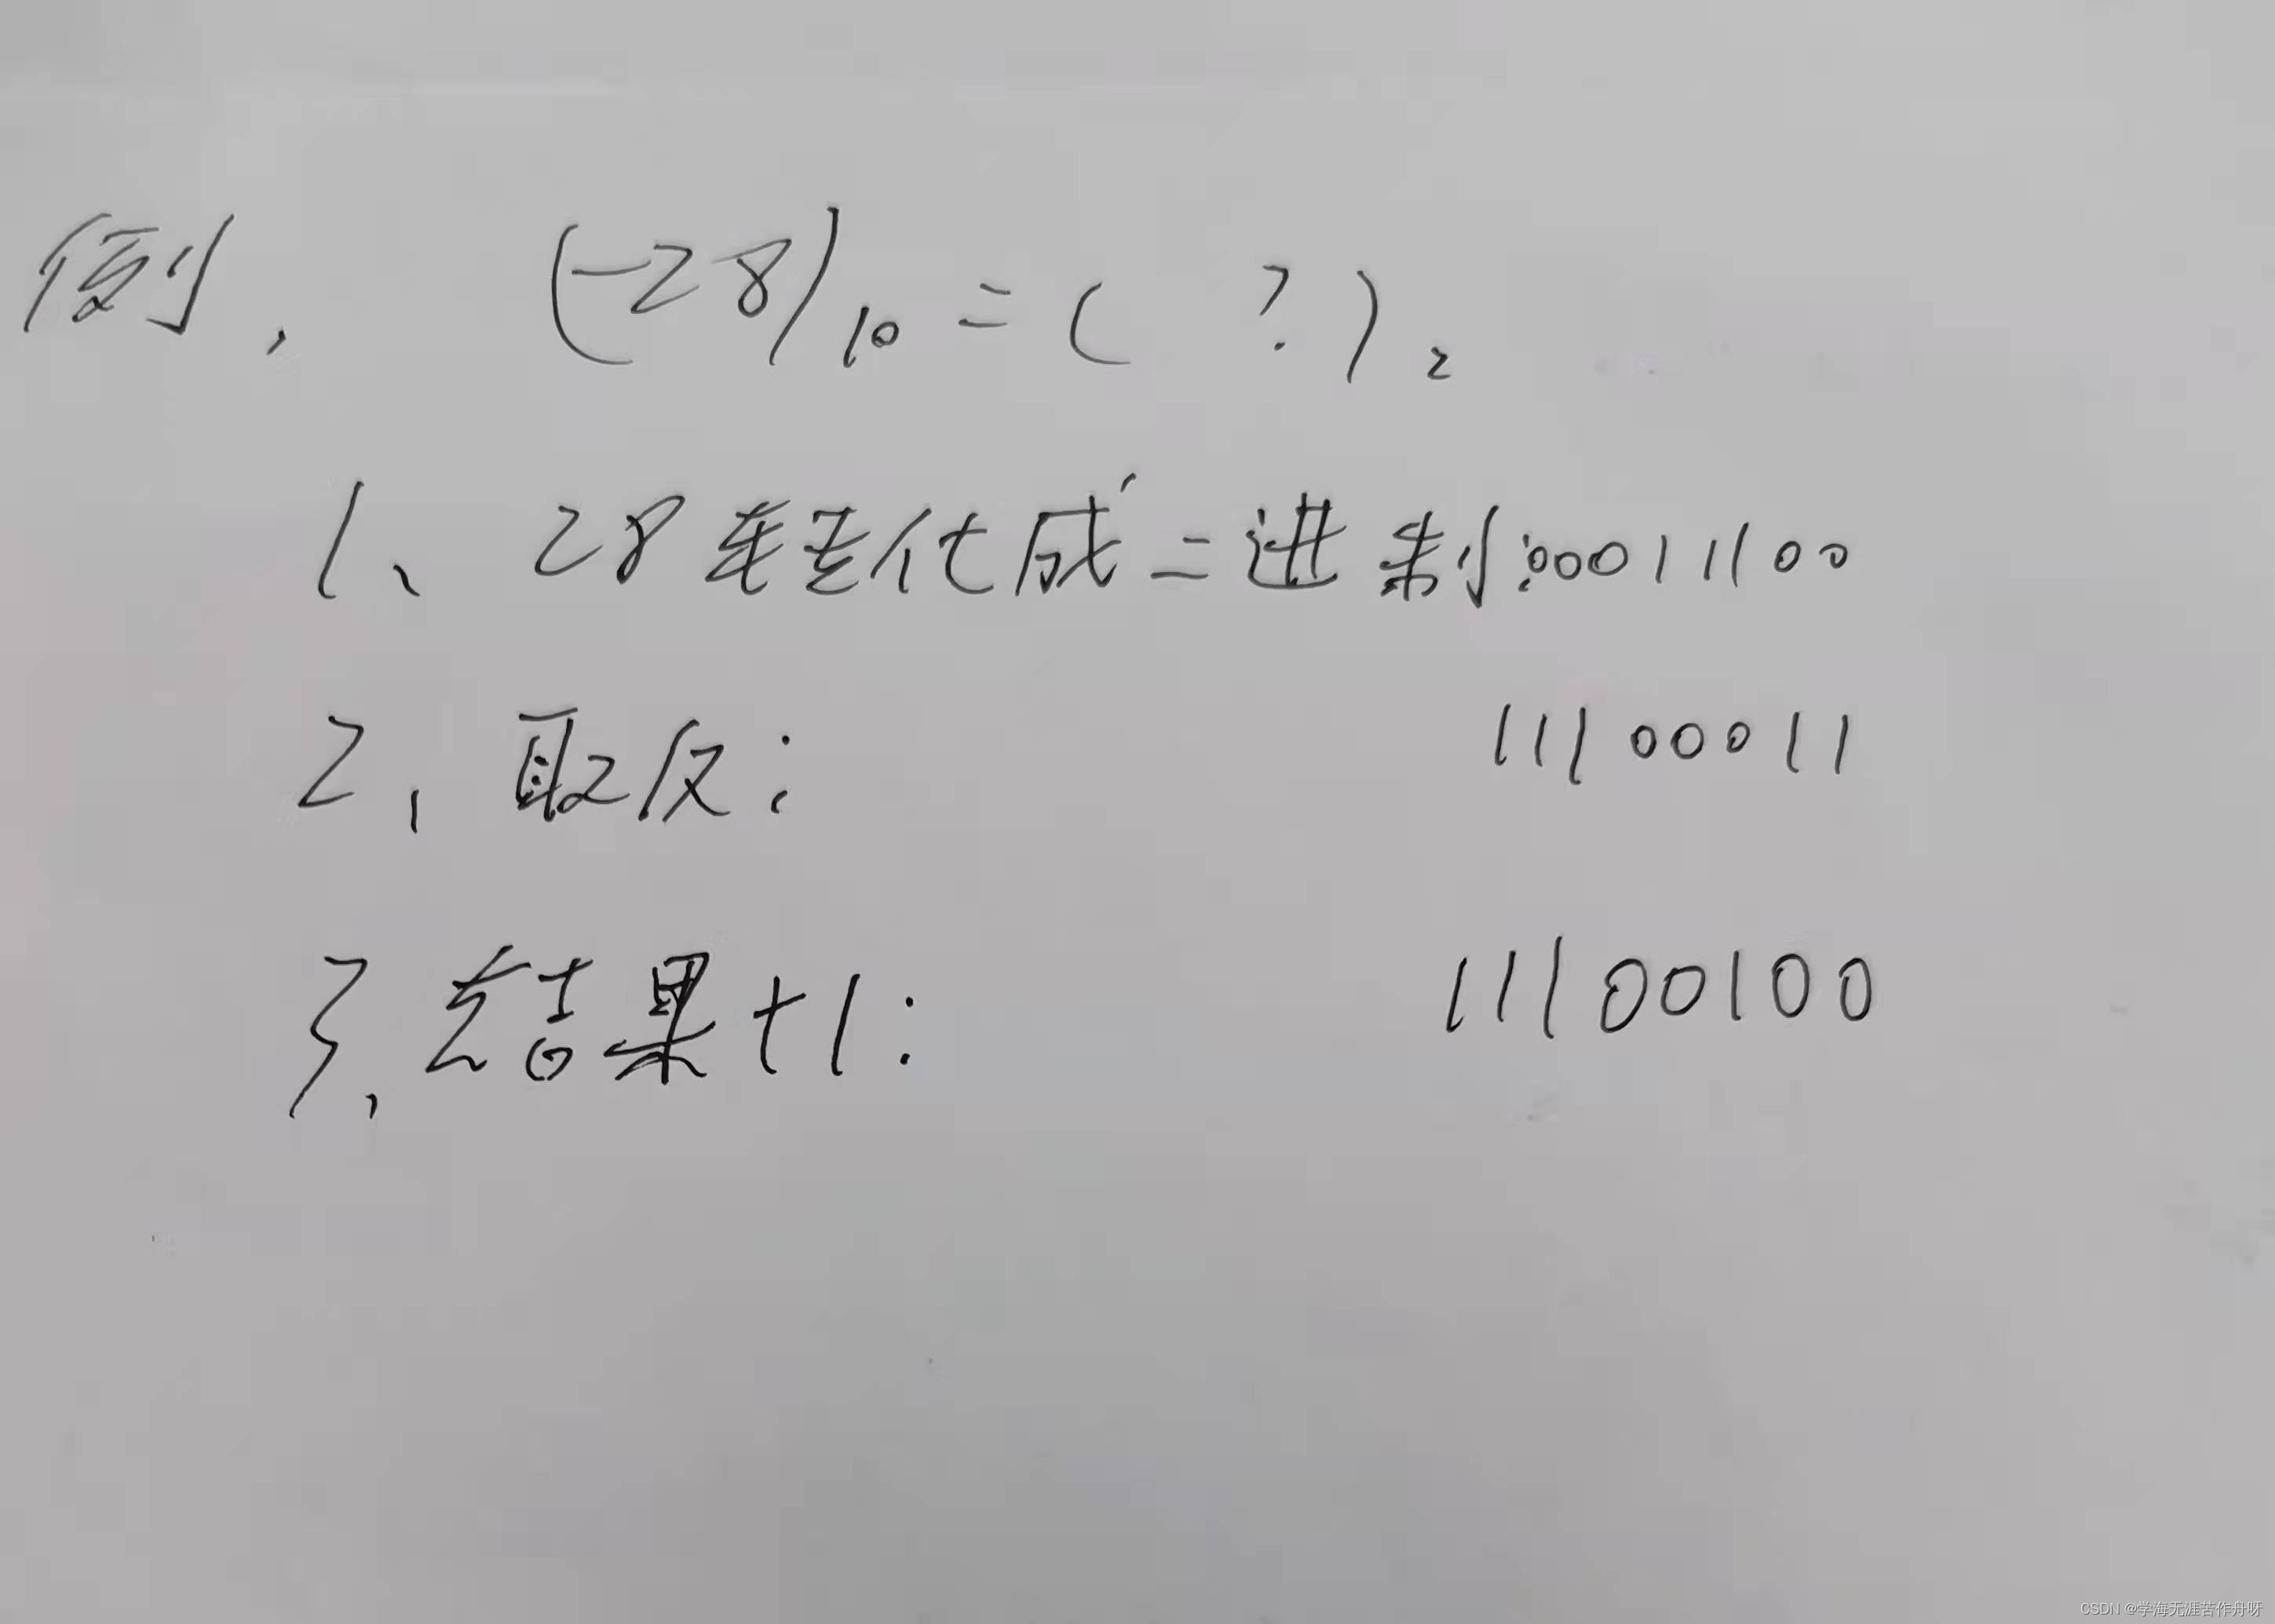 例、 (-28)₁₀ = ( ? )₂
1、28转化成二进制:00011100
2、取反: 11100011
3、结果+1: 11100100
CSDN @学海无涯苦作舟呀